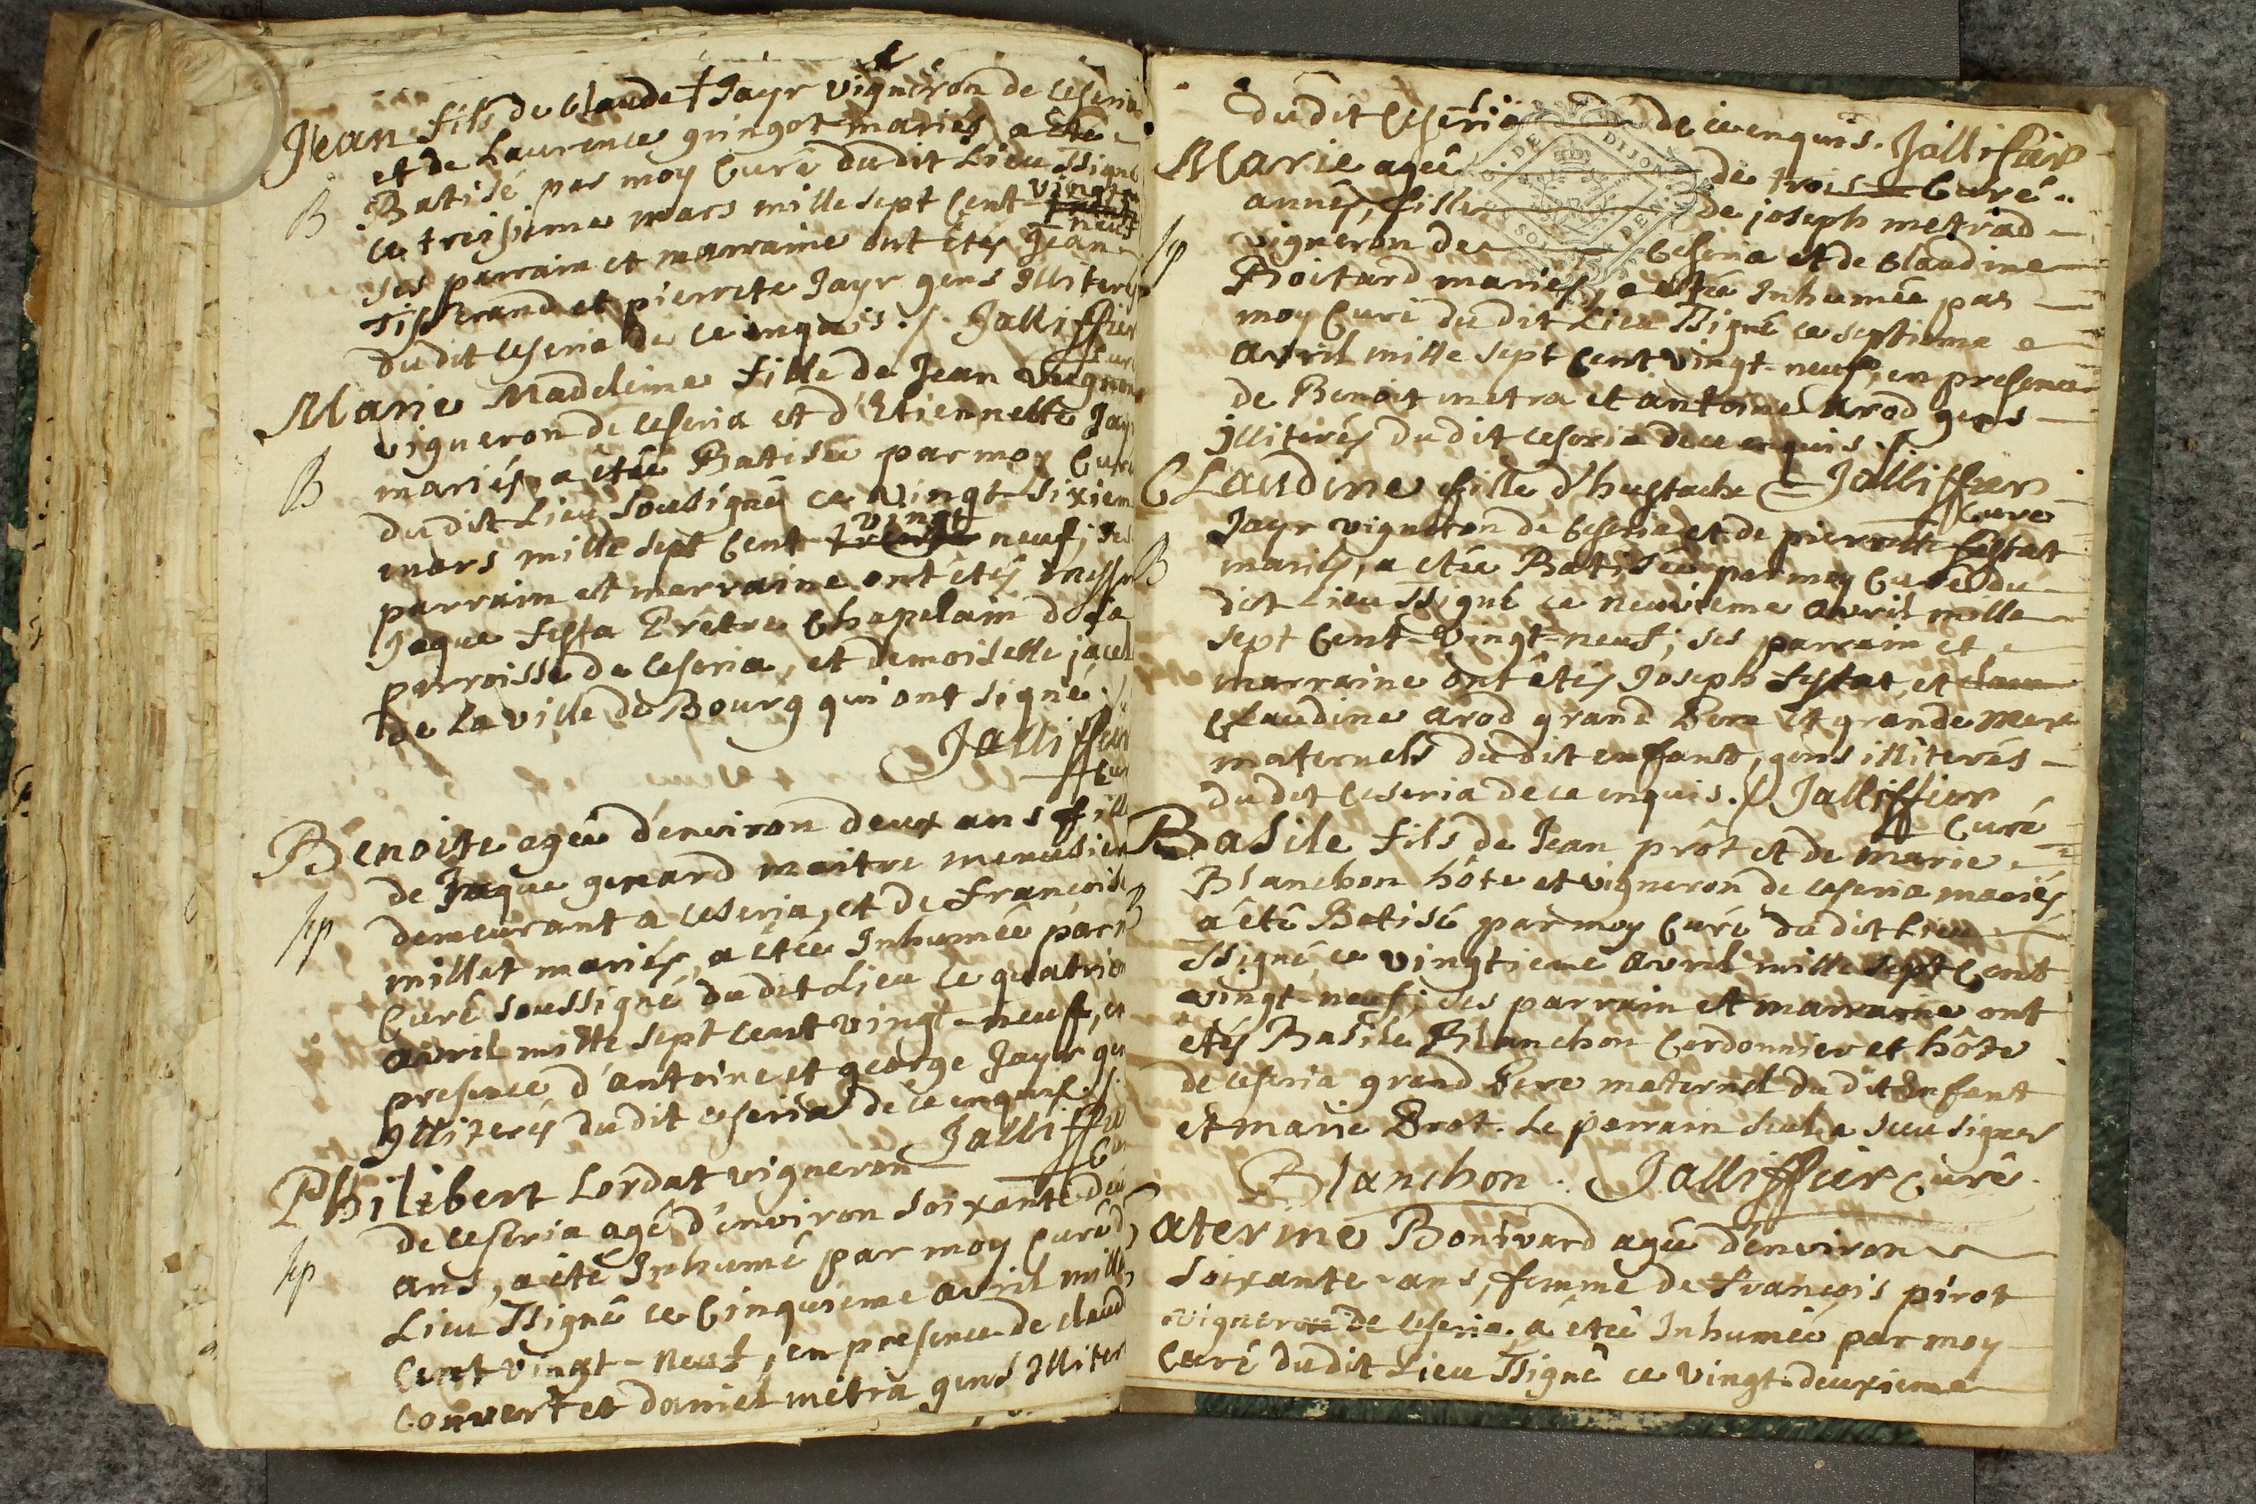 Jean fils de Claude Jayr vigneron de Ceseria
et de Laurence gringot mariés a été
B
Batisé par moy Curé dudit Lieu ssigné
ce treisieme mars mille sept Cent vingt
neuf
ses parrain et marraine ont étés Jean
Tisserand et pierrete Jayr gens Illiterés
dudit Ceseria de ce enquis ./. Jalliffier
Curé
Marie Madeleine fille de Jean
vigneron de Ceseria et d'Etiennette Jayr
B
mariés, a étée Batisée par moy Curé
dudit Lieu Sousigné ce vingt-sixieme
vingt
mars mille sept Cent trente neuf; ses
parrain et marraine ont étés messe
Jaque festa Prêtre Chapelain de la
parroisse de Ceseria, et demoiselle
de la ville de Bourg qui ont signé ./.
Jalliffier
Cur
Benoite agée d'environ deux ans fille
de Jaque genard maitre menusier
sp
demeurant a Ceseria, et de françoise
millet mariés, a étée Inhumée par m
Curé soussigné dudit Lieu ce quatrie
avril mille sept cent vingt-neuf, en
presence d'antoine et george Jayr ge
Illiterés dudit Ceseria de ce enquis ./.
Jalliffier
Cur
Philibert Lordat vigneron
de Ceseria agé d'environ soixante-deu
sp
ans, a été Inhumé par moy Curé d
Lieu ssigné ce Cinquieme avril mille
Cent vingt-neuf, en presence de claud
Convert et daniel metra gens Illiter
dudit Ceseria de ce enquis. Jalliffier
Marie agée de trois Curé
années, fille de joseph metrad
sp
vigneron de Ceseria et de Claudine
Boitard mariés, a étée Inhumée par
moy Curé dudit Lieu ssigné ce septieme
avril mille sept Cent vingt-neuf, en presence
de Benoit metra et antoine arod gens
Illiterés dudit Ceseria de ce enquis ./.
Claudine fille d'hustache Jalliffier
Curé
Jayr vigneron de Ceseria et de pierrette festat
B
mariés, a étée Batisée par moy Curé du
dit Lieu ssigné ce neuvieme avril mille
sept Cent-vingt-neuf; ses parrain et
marraine ont étés Joseph festat, et clau
Claudine arod grand Pere et grande Mere
maternels dudit enfant, gens illiterés
dudit Ceseria de ce enquis ./. Jalliffier
Curé
Basile fils de Jean prôt et de marie
Blanchon hôte et vigneron de Ceseria mariés
B
a été Batisé par moy Curé dudit Lieu
ssigné, ce vingtieme avril mille sept Cent
vingt-neuf; ses parrain et marraine ont
étés Basile Blanchon Cordonnier et hôte
de Ceseria grand Pere maternel dudit Enfant
et marie Prot. Le parrain seul a sceu signer
Blanchon. Jalliffier Curé.
Caterine Bonivard agée d'environ
soixante-ans, femme de françois pirot
vigneron de Ceseria. a étée Inhumée par moy
Curé dudit Lieu ssigné ce vingt-deuxieme